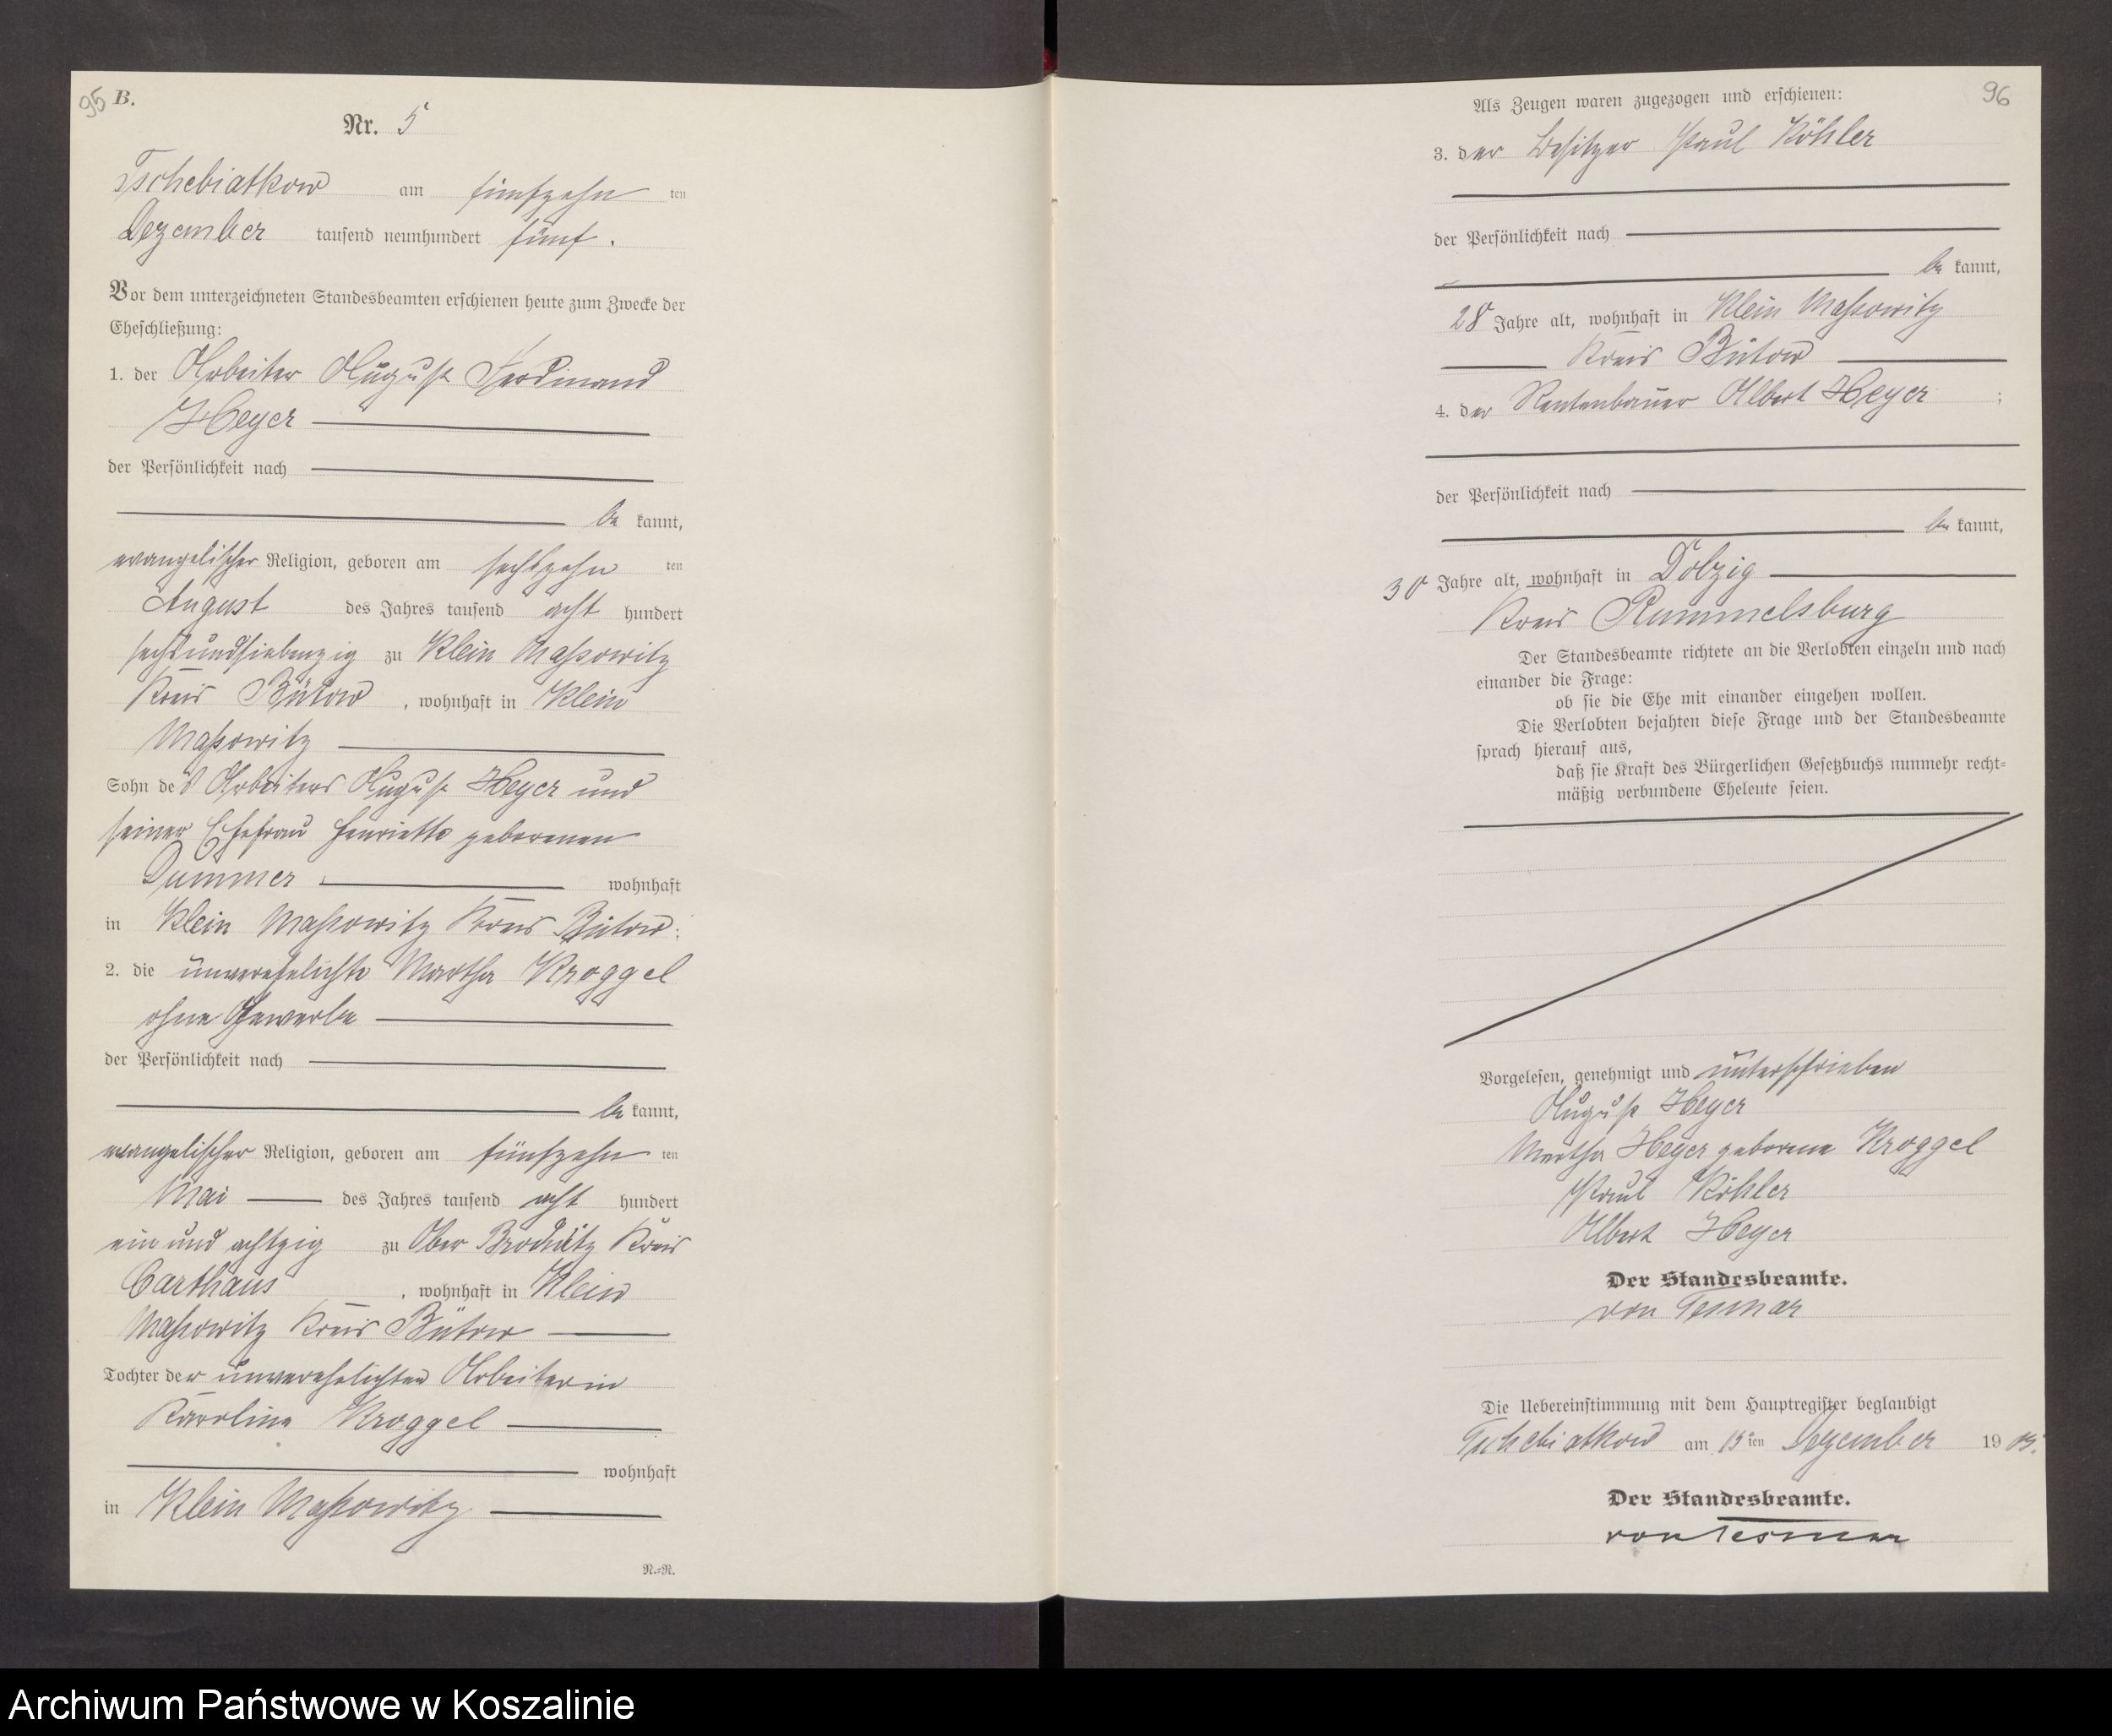 95 B.
Nr. 5
Tschebiatkow am fünfzehn ten
Dezember tausend neunhundert fünf.
Vor dem unterzeichneten Standesbeamten erschienen heute zum Zwecke der
Eheschließung:
1. der Arbeiter August Ferdinand
Heyer
der Persönlichkeit nach
be kannt,
evangelischer Religion, geboren am sechszehn ten
August des Jahres tausend acht hundert
sechsundsiebenzig zu Klein Massowitz
Kreis Bütow, wohnhaft in Klein
Massowitz
Sohn des Arbeiters August Heyer und
seiner Ehefrau Henriette geborenen
Dummer wohnhaft
in Klein Massowitz Kreis Bütow;
2. die unverehelichte Martha Kroggel
ohne Gewerbe
der Persönlichkeit nach
be kannt,
evangelischer Religion, geboren am fünfzehn ten
Mai des Jahres tausend acht hundert
ein und achtzig zu Ober Brodnitz Kreis
Carthaus, wohnhaft in Klein
Massowitz Kreis Bütow
Tochter der unverehelichten Arbeiterin
Karoline Kroggel
wohnhaft
in Klein Massowitz
R.=R.
96
Als Zeugen waren zugezogen und erschienen:
3. der Besitzer Paul Köhler
der Persönlichkeit nach
be kannt,
28 Jahre alt, wohnhaft in Klein Massowitz
Kreis Bütow
4. der Rentenbauer Albert Heyer;
der Persönlichkeit nach
be kannt,
30 Jahre alt, wohnhaft in Dolzig
Kreis Rummelsburg
Der Standesbeamte richtete an die Verlobten einzeln und nach
einander die Frage:
ob sie die Ehe mit einander eingehen wollen.
Die Verlobten bejahten diese Frage und der Standesbeamte
sprach hierauf aus,
daß sie kraft des Bürgerlichen Gesetzbuchs nunmehr recht=
mäßig verbundene Eheleute seien.
Vorgelesen, genehmigt und unterschrieben
August Heyer
Martha Heyer geborene Kroggel
Paul Köhler
Albert Heyer
Der Standesbeamte.
von Tesmar
Die Uebereinstimmung mit dem Hauptregister beglaubigt
Tschebiatkow am 15 ten Dezember 19 05.
Der Standesbeamte.
von Tesmar
Archiwum Państwowe w Koszalinie